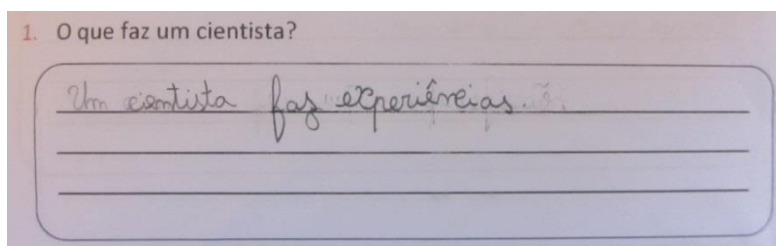 1. O que faz um cientista?
Um cientista faz experiências.